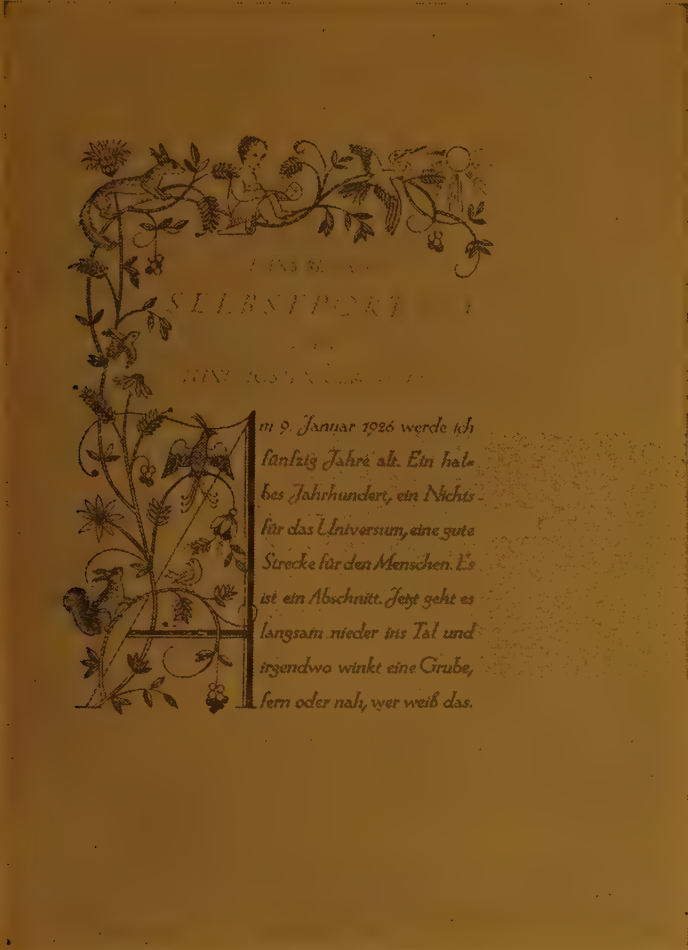 SELBSTPORTRAIT
Am 9. Januar 1926 werde ich
fünfzig Jahre alt. Ein hal-
bes Jahrhundert, ein Nichts
für das Universum, eine gute
Strecke für den Menschen. Es
ist ein Abschnitt. Jetzt geht es
langsam nieder ins Tal und
irgendwo winkt eine Grube,
fern oder nah, wer weiß das.